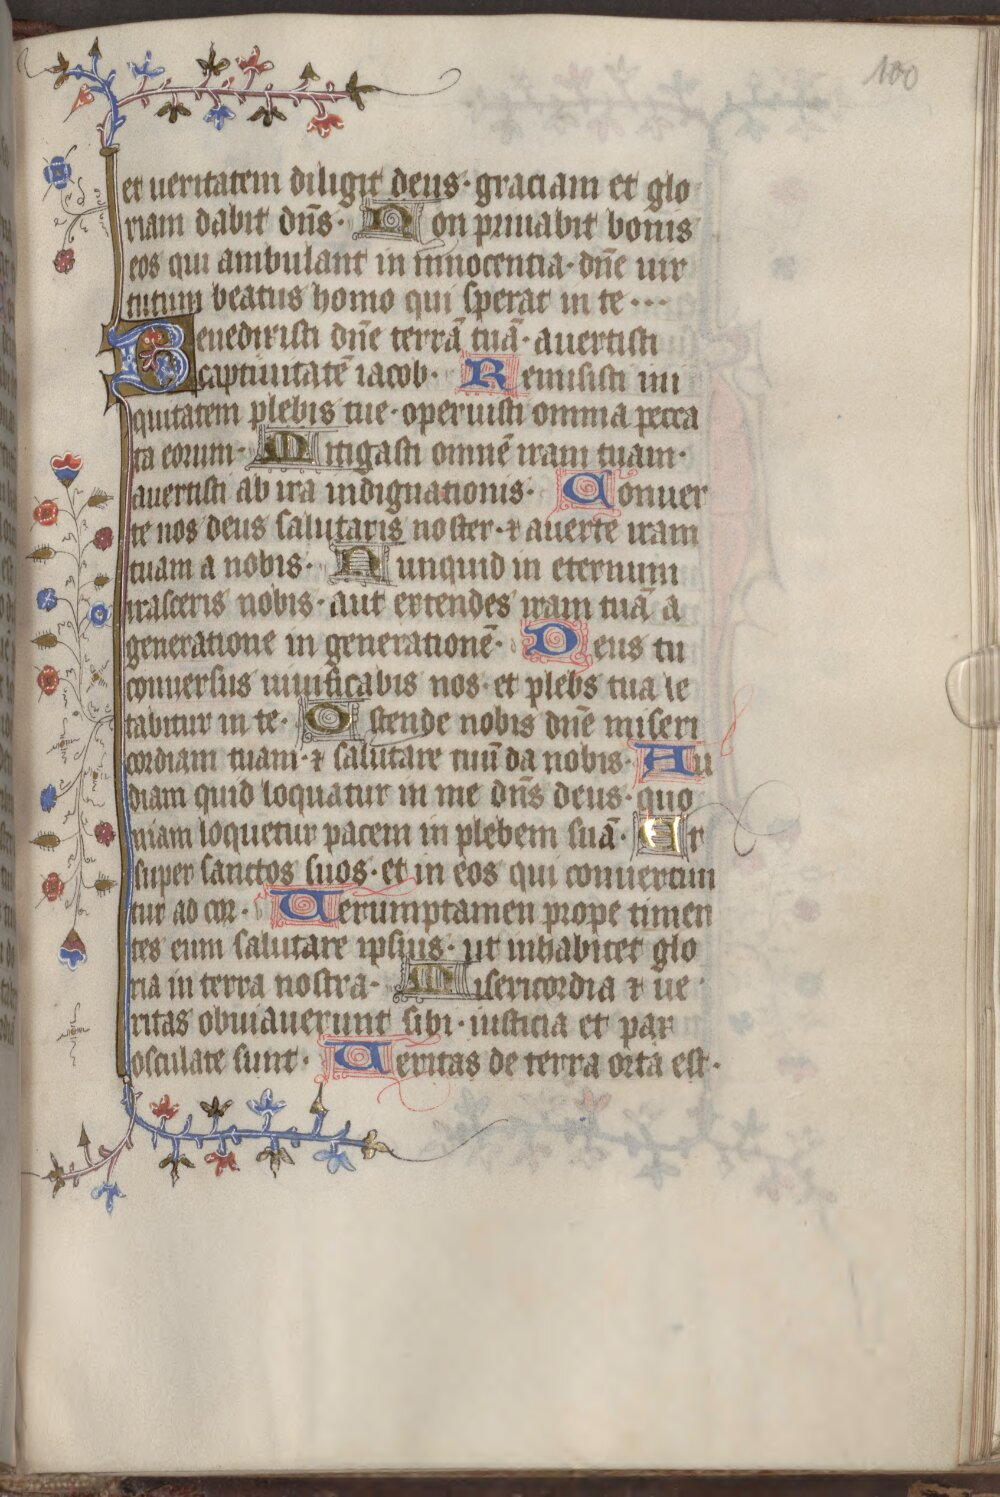 100
et ueritatem diligit deus· graciam et glo
riam dabit dn̄s· Non priuabit bonis
eos qui ambulant in innocentia· dn̄e uir
tutum beatus homo qui sperat in te···
Benedixisti dn̄e terrā tuā· auertisti
captiuitatē iacob· Remisisti ini
quitatem plebis tue· operuisti omnia pecca
ta eorum· Mitigasti omnē iram tuam·
auertisti ab ira indignationis· Conuer
te nos deus salutaris noster· ⁊ auerte iram
tuam a nobis· Nunquid in eternum
irasceris nobis· aut extendes iram tuā a
generatione in generationē· Deus tu
conuersus uiuificabis nos· et plebs tua le
tabitur in te· Ostende nobis dn̄e miseri
cordiam tuam· ⁊ salutare tuū da nobis· Au
diam quid loquatur in me dn̄s deus· quo
niam loquetur pacem in plebem suā· Et
super sanctos suos· et in eos qui conuertun
tur ad cor· Uerumptamen prope timen
tes eum salutare ipsius· ut inhabitet glo
ria in terra nostra· Misericordia ⁊ ue
ritas obuiauerunt sibi· iusticia et pax
osculate sunt· Ueritas de terra orta est·